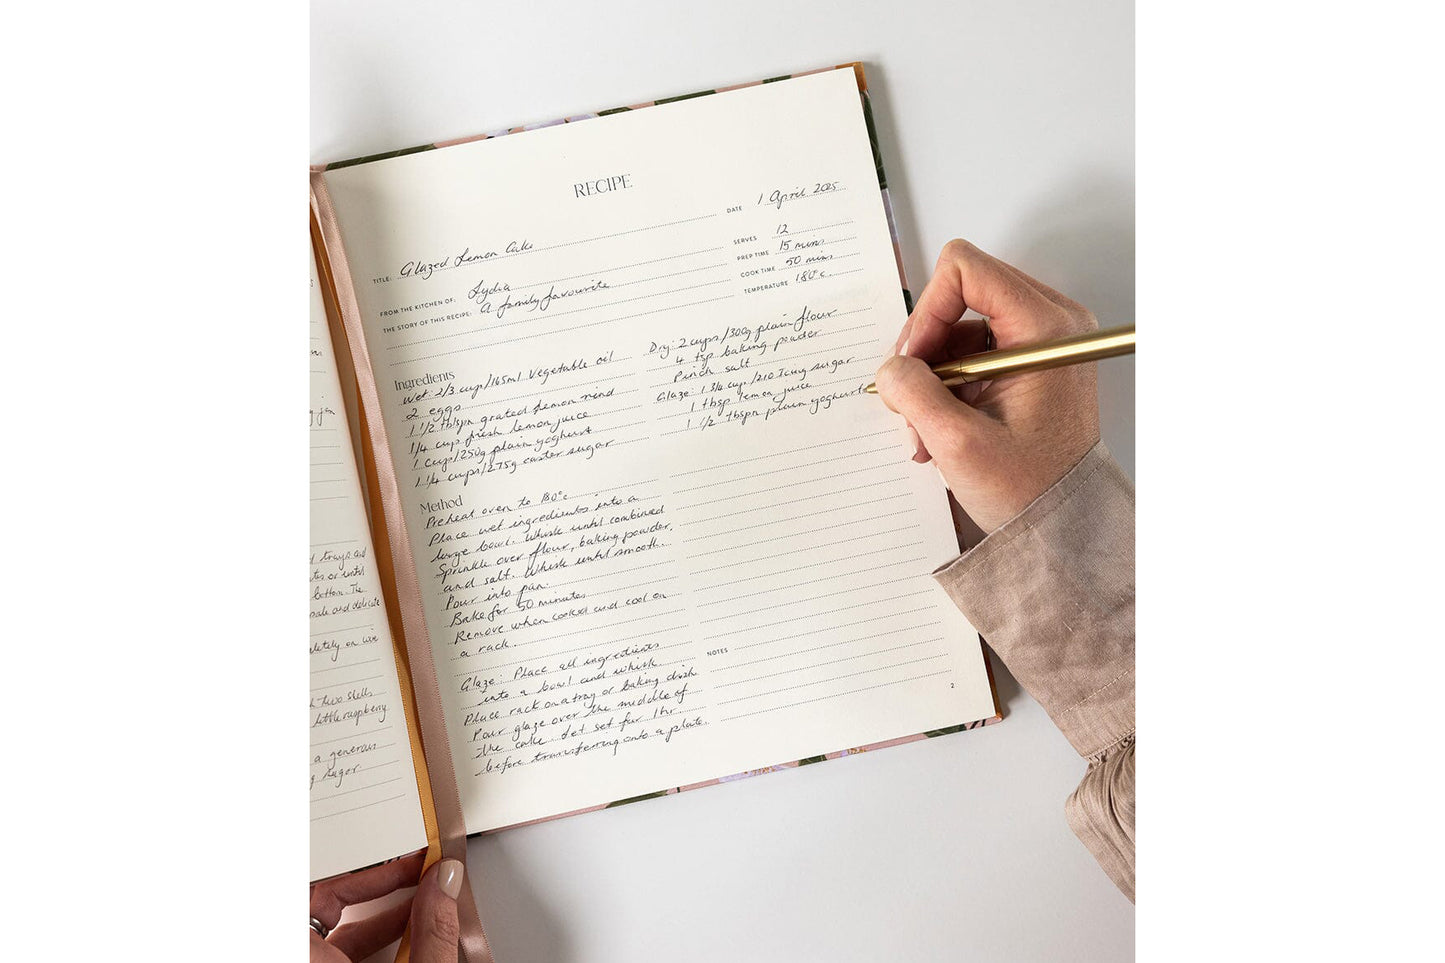 RECIPE
DATE 1 April 2025
TITLE: Glazed Lemon Cake
SERVES 12
PREP TIME 15 mins
COOK TIME 50 mins
TEMPERATURE 180°c.
FROM THE KITCHEN OF: Lydia
THE STORY OF THIS RECIPE: A family favourite
Ingredients
Wet: 2/3 cup/165ml vegetable oil
2 eggs
1 1/2 tblspn grated lemon rind
1/4 cup fresh lemon juice
1 cup/250g plain yoghurt
1 1/4 cups/275g caster sugar
Dry: 2 cups/300g plain flour
4 tsp baking powder
Pinch salt
Glaze: 1 3/4 cup/210 Icing sugar
1 tbsp lemon juice
1 1/2 tbspn plain yoghurt
Method
Preheat oven to 180°c
Place wet ingredients into a
large bowl. Whisk until combined
Sprinkle over flour, baking powder,
and salt. Whisk until smooth.
Pour into pan.
Bake for 50 minutes
Remove when cooked and cool on
a rack.
Glaze: Place all ingredients
into a bowl and whisk.
Place rack on a tray or baking dish
Pour glaze over the middle of
the cake. Let set for 1 hr
before transferring onto a plate.
NOTES
2
trays and
or until
bottom. The
and delicate
on wire
two shells
little raspberry
a generous
sugar